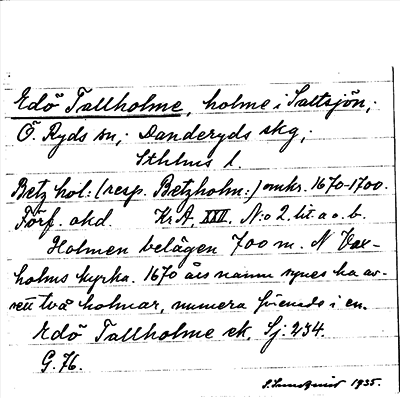 Edö Tallholme, holme i Saltsjön,
Ö. Ryds sn, Danderyds skg,
Sthlms l.
Betz hol. (resp. Betzholm:) omkr. 1670-1700.
Förf. okd KrA, XXII. N:o 2. lit. a o. b.
Holmen belägen 700 m. N Vax-
holms kyrka. 1670 års namn synes ha av-
sett två holmar, numera förenade i en.
Edö Tallholme ek. Sj. 234.
G. 76.
S. Lundquist 1935.